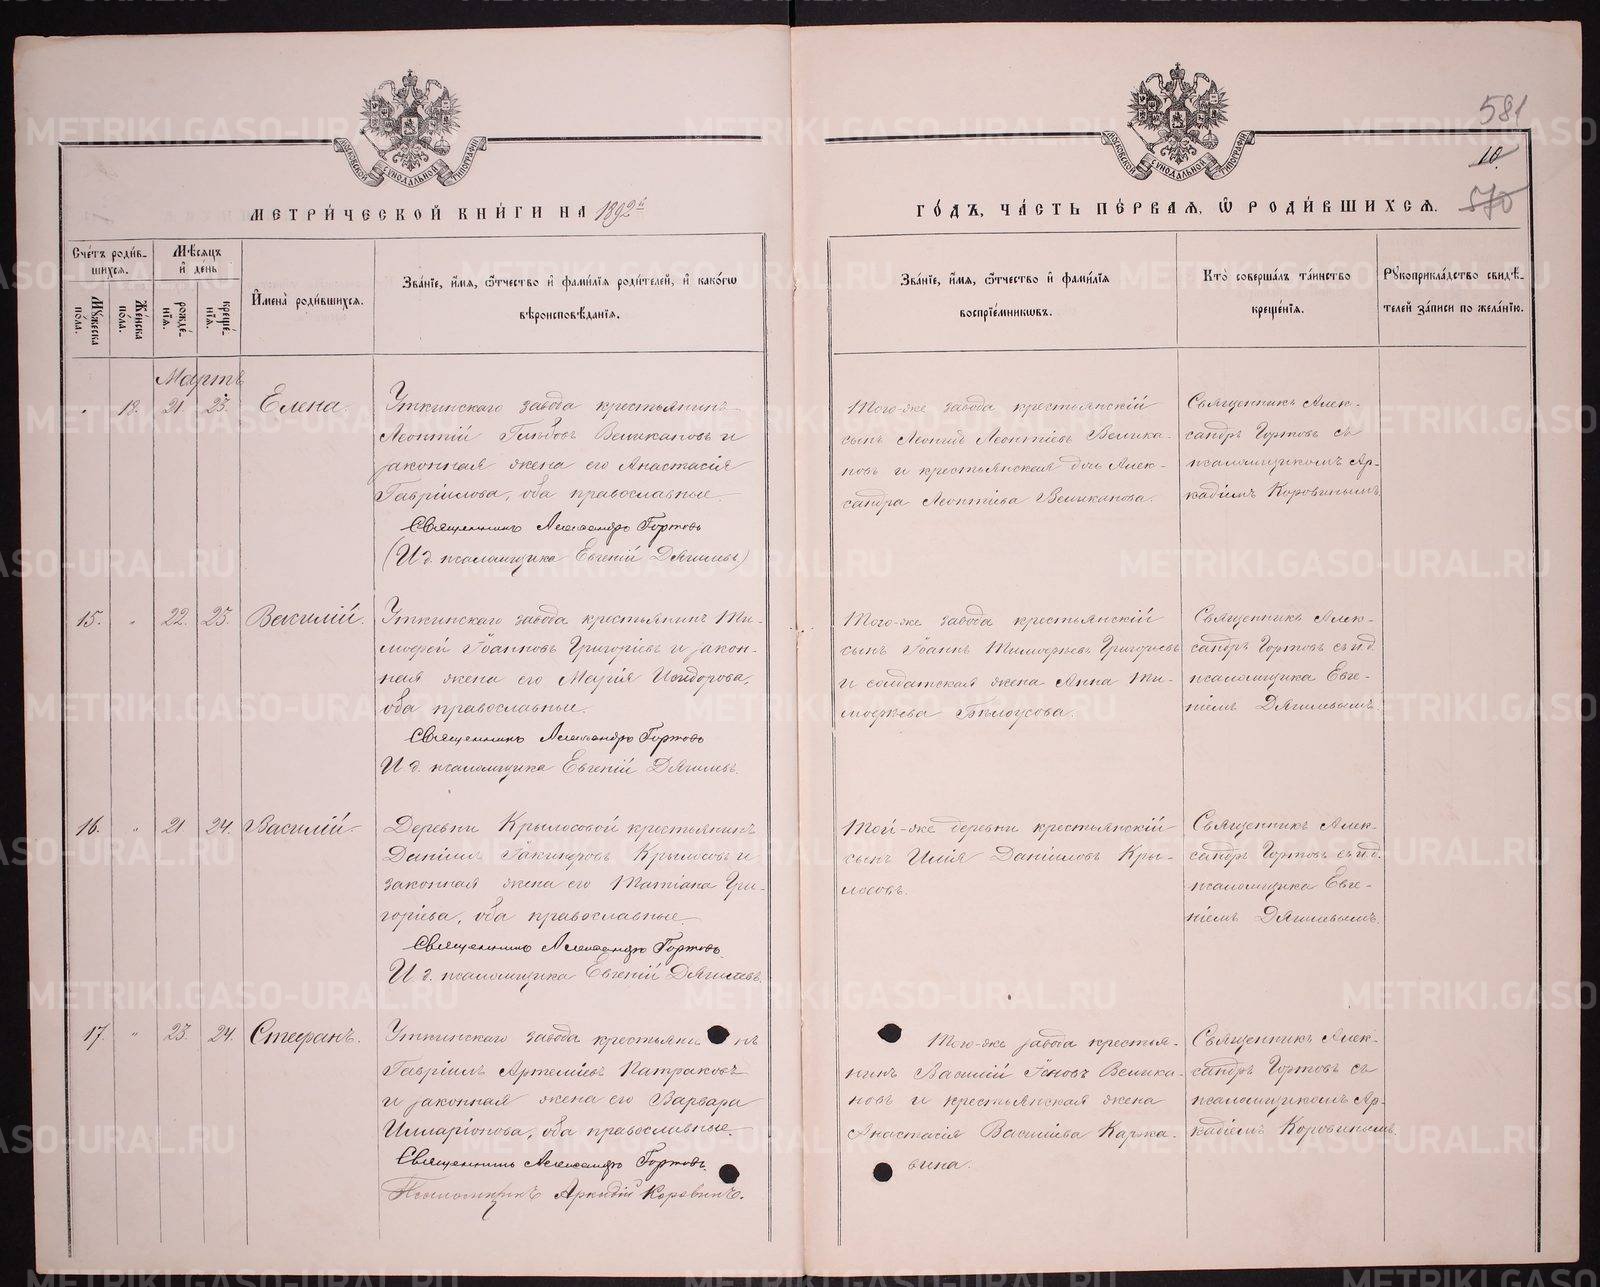 581
10
570
МЕТРИ́ЧЕСКОЙ КНИ́ГИ НА 1892й
ГО́ДЪ, ЧА́СТЬ ПЕ́РВАѦ, Ѡ РОДИ́ВШИХСѦ.
Сче́тъ роди́в-
шихсѧ.
Мѣ́сѧцъ
и҆ де́нь
Мꙋ́жеска
по́ла.
Же́нска
по́ла.
рожде́-
нїѧ.
креще́-
нїѧ.
И҆мена̀ роди́вшихсѧ.
Зва́нїе, и҆́мѧ, ѻ҆́тчество и҆ фами́лїѧ роди́телей, и҆ како́гѡ
вѣроисповѣ́данїѧ.
Зва́нїе, и҆́мѧ, ѻ҆́тчество и҆ фами́лїѧ
воспрїе́мникѡвъ.
Кто̀ соверша́лъ та́инство
креще́нїѧ.
Рꙋкоприкла́дство свидѣ́-
телей за́писи по жела́нїю.
Мартъ
„ 13. 21. 23. Елена.
Уткинскаго завода крестьянинъ
Леонтій Глѣбовъ Великановъ и
законная жена его Анастасія
Гавріилова, оба православные.
Священникъ Александръ Гортовъ
(И д. псаломщика Евгеній Дягилевъ)
Того-же завода крестьянскій
сынъ Леонидъ Леонтіевъ Велика-
новъ и крестьянская дочь Алек-
сандра Леонтіева Великанова.
Священникъ Алек-
сандръ Гортовъ съ
псаломщикомъ Ар-
кадіемъ Коровинымъ.
15. „ 22. 23. Василій.
Уткинскаго завода крестьянинъ Ти-
мофей Іоанновъ Григорьевъ и закон-
ная жена его Марія Исидорова,
оба православные.
Священникъ Александръ Гортовъ
И д. псаломщика Евгеній Дягилевъ.
Того-же завода крестьянскій
сынъ Іоаннъ Тимофеевъ Григорьевъ
и солдатская жена Анна Ти-
мофеева Бѣлоусова.
Священникъ Алек-
сандръ Гортовъ съ и.д.
псаломщика Евге-
ніемъ Дягилевымъ.
16. „ 21 24. Василій.
Деревни Крылосовой крестьянинъ
Даніилъ Іакинфовъ Крылосовъ и
законная жена его Татіана Гри-
горіева, оба православные
Священникъ Александръ Гортовъ.
И д. псаломщика Евгеній Дягилевъ.
Той-же деревни крестьянскій
сынъ Илія Данииловъ Кры-
лосовъ.
Священникъ Алек-
сандръ Гортовъ съ и.д.
псаломщика Евге-
ніемъ Дягилевымъ.
17. „ 23. 24. Стефанъ.
Уткинскаго завода крестьянинъ
Гавріилъ Артеміевъ Патраковъ
и законная жена его Варвара
Илларіонова, оба православные.
Священникъ Александръ Гортовъ.
Псаломщикъ Аркадій Коровинъ.
Того-же завода крестья-
нинъ Василій Іоновъ Велика-
новъ и крестьянская жена
Анастасія Васильева Каржа-
вина.
Священникъ Алек-
сандръ Гортовъ съ
псаломщикомъ Ар-
кадіемъ Коровинымъ.
METRIKI.GASO-URAL.RU